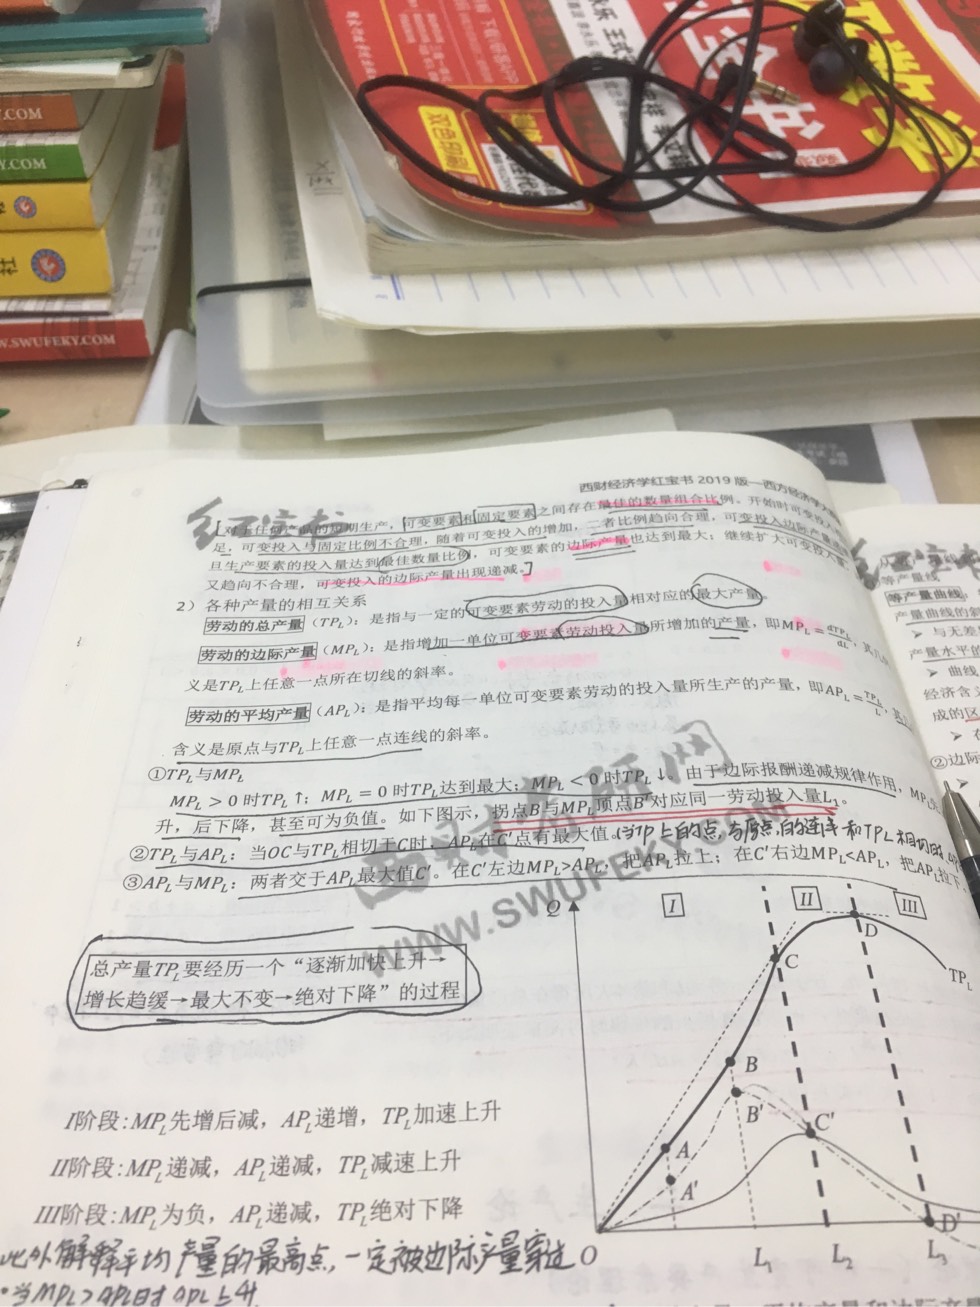 .COM
.COM
社
W.SWUFEKY.COM
双色印刷
西财经济学红宝书 2019 版—西方经济学
红宝书
对上任何产品的短期生产，可变要素和固定要素之间存在最佳的数量组合比例。开始时可变投入
足，可变投入与固定比例不合理，随着可变投入的增加，二者比例趋向合理，可变投入边际产量
旦生产要素的投入量达到最佳数量比例，可变要素的边际产量也达到最大；继续扩大可变投入
又趋向不合理，可变投入的边际产量出现递减。
2）各种产量的相互关系
劳动的总产量（TP_L）：是指与一定的可变要素劳动的投入量相对应的最大产量。
劳动的边际产量（MP_L）：是指增加一单位可变要素劳动投入量所增加的产量，即MP_L = dTP_L/dL，其几何
义是TP_L上任意一点所在切线的斜率。
劳动的平均产量（AP_L）：是指平均每一单位可变要素劳动的投入量所生产的产量，即AP_L = TP_L/L，其
含义是原点与TP_L上任意一点连线的斜率。
①TP_L与MP_L
MP_L > 0 时TP_L↑；MP_L = 0 时TP_L达到最大；MP_L < 0 时TP_L↓。由于边际报酬递减规律作用，MP_L
升，后下降，甚至可为负值。如下图示，拐点B与MP_L顶点B'对应同一劳动投入量L₁。
②TP_L与AP_L：当OC与TP_L相切于C时，AP_L在C'点有最大值。（当TP上的点，与原点，的连线和TP_L相切时，
③AP_L与MP_L：两者交于AP_L最大值C'。在C'左边MP_L>AP_L，把AP_L拉上；在C'右边MP_L<AP_L，把AP_L拉下
西财考研网
WWW.SWUFEKY.COM
总产量TP_L要经历一个“逐渐加快上升→
增长趋缓→最大不变→绝对下降”的过程
Q
I
II
III
D
C
TP_L
B
B'
C'
A
A'
D'
O
L₁
L₂
L₃
I阶段:MP_L先增后减，AP_L递增，TP_L加速上升
II阶段:MP_L递减，AP_L递减，TP_L减速上升
III阶段:MP_L为负，AP_L递减，TP_L绝对下降
此外解释平均产量的最高点，一定被边际产量穿过
·当MPL>APL时APL上升
等产量线
等产量曲线
产量曲线的斜
➢ 与无差
产量水平的
➢ 曲线
经济含
成的区
➢ 在
②边际